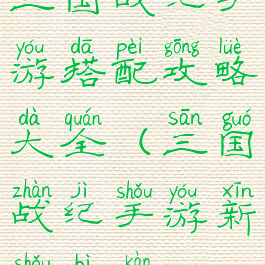 yóu dā pèi gōng lüè
游搭配攻略
dà quán sān guó
大全（三国
zhàn jì shǒu yóu xīn
战纪手游新
shǒu bì kàn